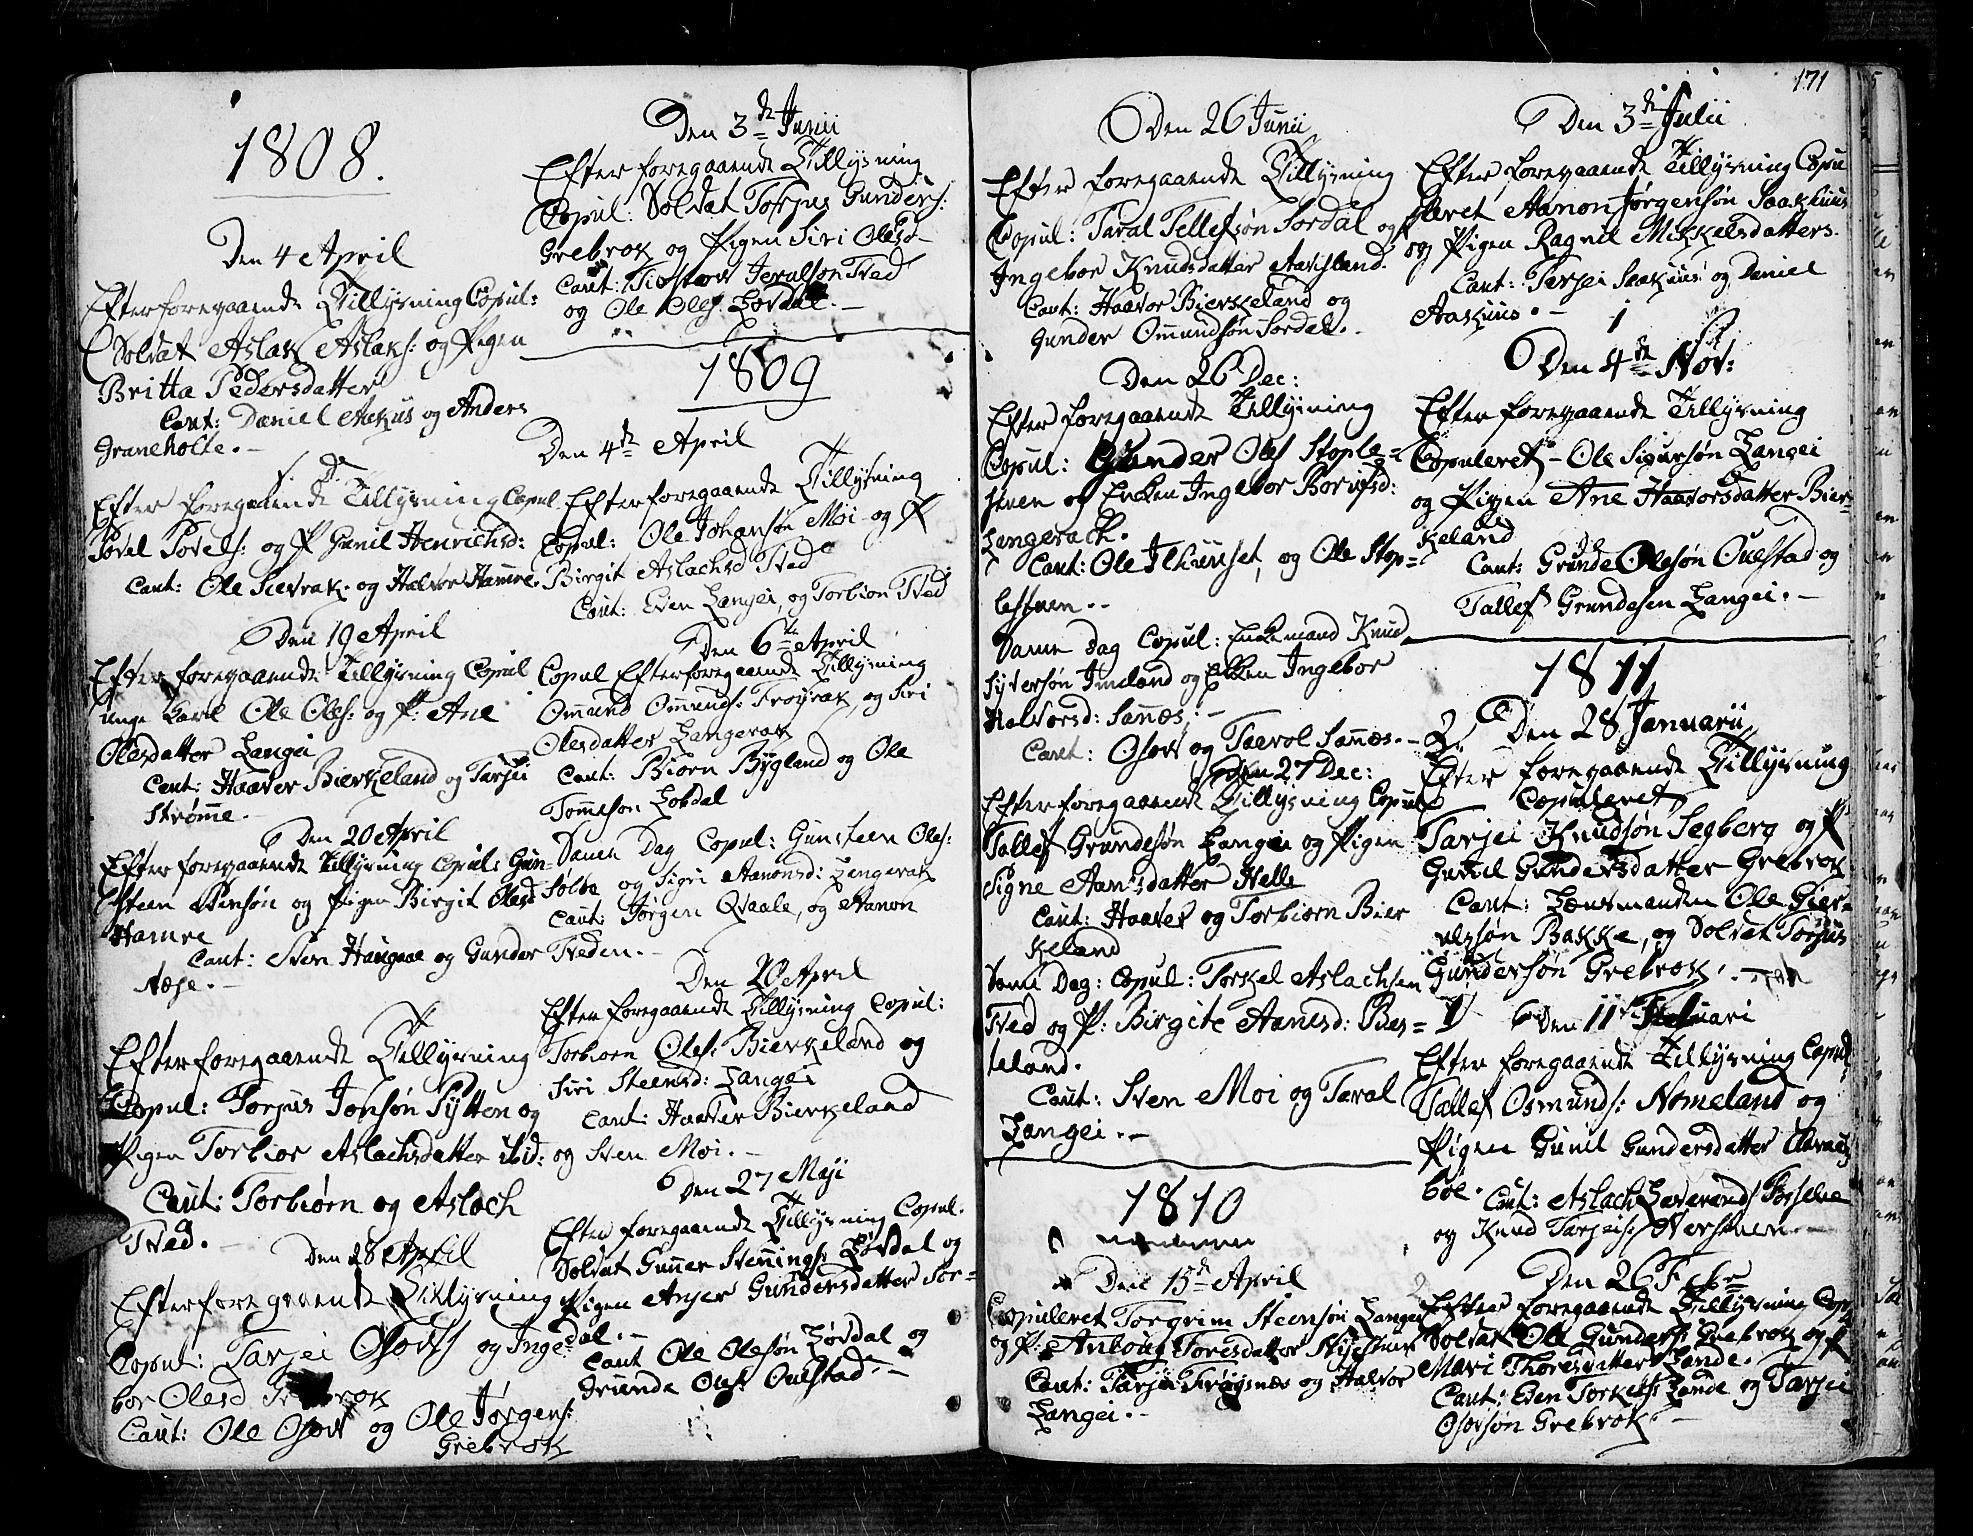 1808.
Den 4 April
Efter foregaaende Tillysning Copul:
Soldat Aslak Aslaks: og Pigen
Britta Pedersdatter
Caut: Daniel Aakus og Anders
Graneholte. -
Efter foregaaende Tillysning Copul
Povel Povels: og P Gunil Henrichsd:
Caut: Ole Sievrak og Halvor Hamre.
Den 19 April
Efter foregaaende Tillysning Copul
unge Karl Ole Oles: og P: Ane
Olesdatter Langei
Caut: Haaver Bierkeland og Tarjei
Strømme. -
Den 20 April
Efter foregaaende Tillysning Copul: Gun-
steen og Pigen Birgit Olesd
Hamre
Caut: Sven Haugaae og Gunder
Næse. -
Efter foregaaende Tillysning
Copul: Torjus Johsøn Sÿtten og
Pigen Torbior Aslachsdatter ibid:
Caut: Torbiørn og Aslach
Tved. -
Den 28 April
Efter foregaaende Tillysning
Copul: Tarjei Osovs og Inge-
bor Olesd
Caut: Ole Osovs og Ole Jørgens:
Grebrok
Den 3de Junii
Efter foregaaende Tillysning
Copul: Soldat Torjus Gunders:
Grebrok og Pigen Siri Olesd-
Caut: Tved
og Ole Oles: Lovdal. -
1809
Den 4de April
Efter foregaaende Tillysning
Copul: Ole Johansøn Moi og P
Birgit Aslachsd Tved
Caut: Even Langei, og Torbion Tved
Den 6te April
Copul Efter foregaaende Tillysning
Omund Omunds: Frøyrak, og Siri
Olesdatter Langerak
Caut: Biørn Bygland og Ole
Tommeson Lobdal
Samme Dag Copul: Gunsteen Oles:
Sølbe og Sigri Aanonsd: Langerak
Caut: Jørgen Qvaale, og Aanon
Tveden. -
Den 20 April
Efter foregaaende Tillysning Copul:
Torbiorn Oles: Bierkeland og
Siri Steensd: Langei
Caut: Haaver Bierkeland
og Sven Moi. -
Den 27 Maji
Efter foregaaende Tillysning Copul:
Soldat Gunner Stennings: Lovdal og
Pigen Anser Gundersdatter Sor-
dal. -
Caut Ole Olesøn Løvdal og
Grunde Oles: Oulstad. -
171
Den 26 Junii
Efter foregaaende Tillysning
Copul: Taral Tellefsøn Sordal og P
Ingebor Knudsdatter Aavisland.
Caut: Haavor Bierkeland og
Gunder Omundsøn Sordal. -
Den 26 Dec:
Efter foregaaende Tillysning
Copul: Gunder Oles Stople-
steen og Enken Ingebor Borufsd:
Langerach.
Caut: Ole og Ole Stop-
lesteen. -
Samme Dag Copul: Enkemand Knud
Syversøn Imeland og Enken Ingebor
Halvorsd: Sannæs. -
Caut: Osov og Taerol Sannæs. -
Den 27 Dec:
Efter foregaaende Tillysning Copul
Tallef Grundesøn Langei og Pigen
Signe Aanesdatter Helle
Caut: Haaver og Torbiorn Bier
keland
Samme Dag: Copul: Torkel Aslachsen
Tved og P: Birgite Aanesd: Bes-
teland.
Caut: Sven Moi og Taral
Langei. -
1810
Den 15de April
Copuleret Torgrim Steensøn Langei
og P: Anboug Toresdatter
Caut: Tarjei Frøysnæs og Halvor
Langei. -
Den 3de Julii
Efter foregaaende Tillysning Copu
leret Aanon Jørgensøn Saakhuus
og Pigen Ragnil Mikkelsdatters.
Caut: Tarjei Saakuus og Daniel
Aakuus. -
Den 4de Nov:
Efter foregaaende Tillysning
Copuleret - Ole Sigursøn Langei
og Pigen Ane Haavorsdatter Bier-
keland
Caut: Grunde Olesøn Oulstad og
Tallef Grundesen Langei. -
1811
2. Den 28 Januarii
Efter foregaaende Tillysning
Copuleret
Tarjei Knudsøn Segberg og P
Gunil Gundersdatter Grebrok
Caut: Lensmanden Ole Gier-
ulssøn Bakke, og Soldat Torjus
Gundersøn Grebrok. -
1 Den 11te Februari
Efter foregaaende Tillysning Copul
Tallef Osmunds: Nomeland og
Pigen Gunil Gundersdatter
boe. Caut: Aslach
og Knud Tarjeis:
Den 26 Febr
Efter foregaaende Tillysning Cop
Soldat Ole Gunders: Grebrok og P
Mari Thoresdatter Lande.
Caut: Even Torkels: Lande og Tarjei
Osovsøn Grebrok. -